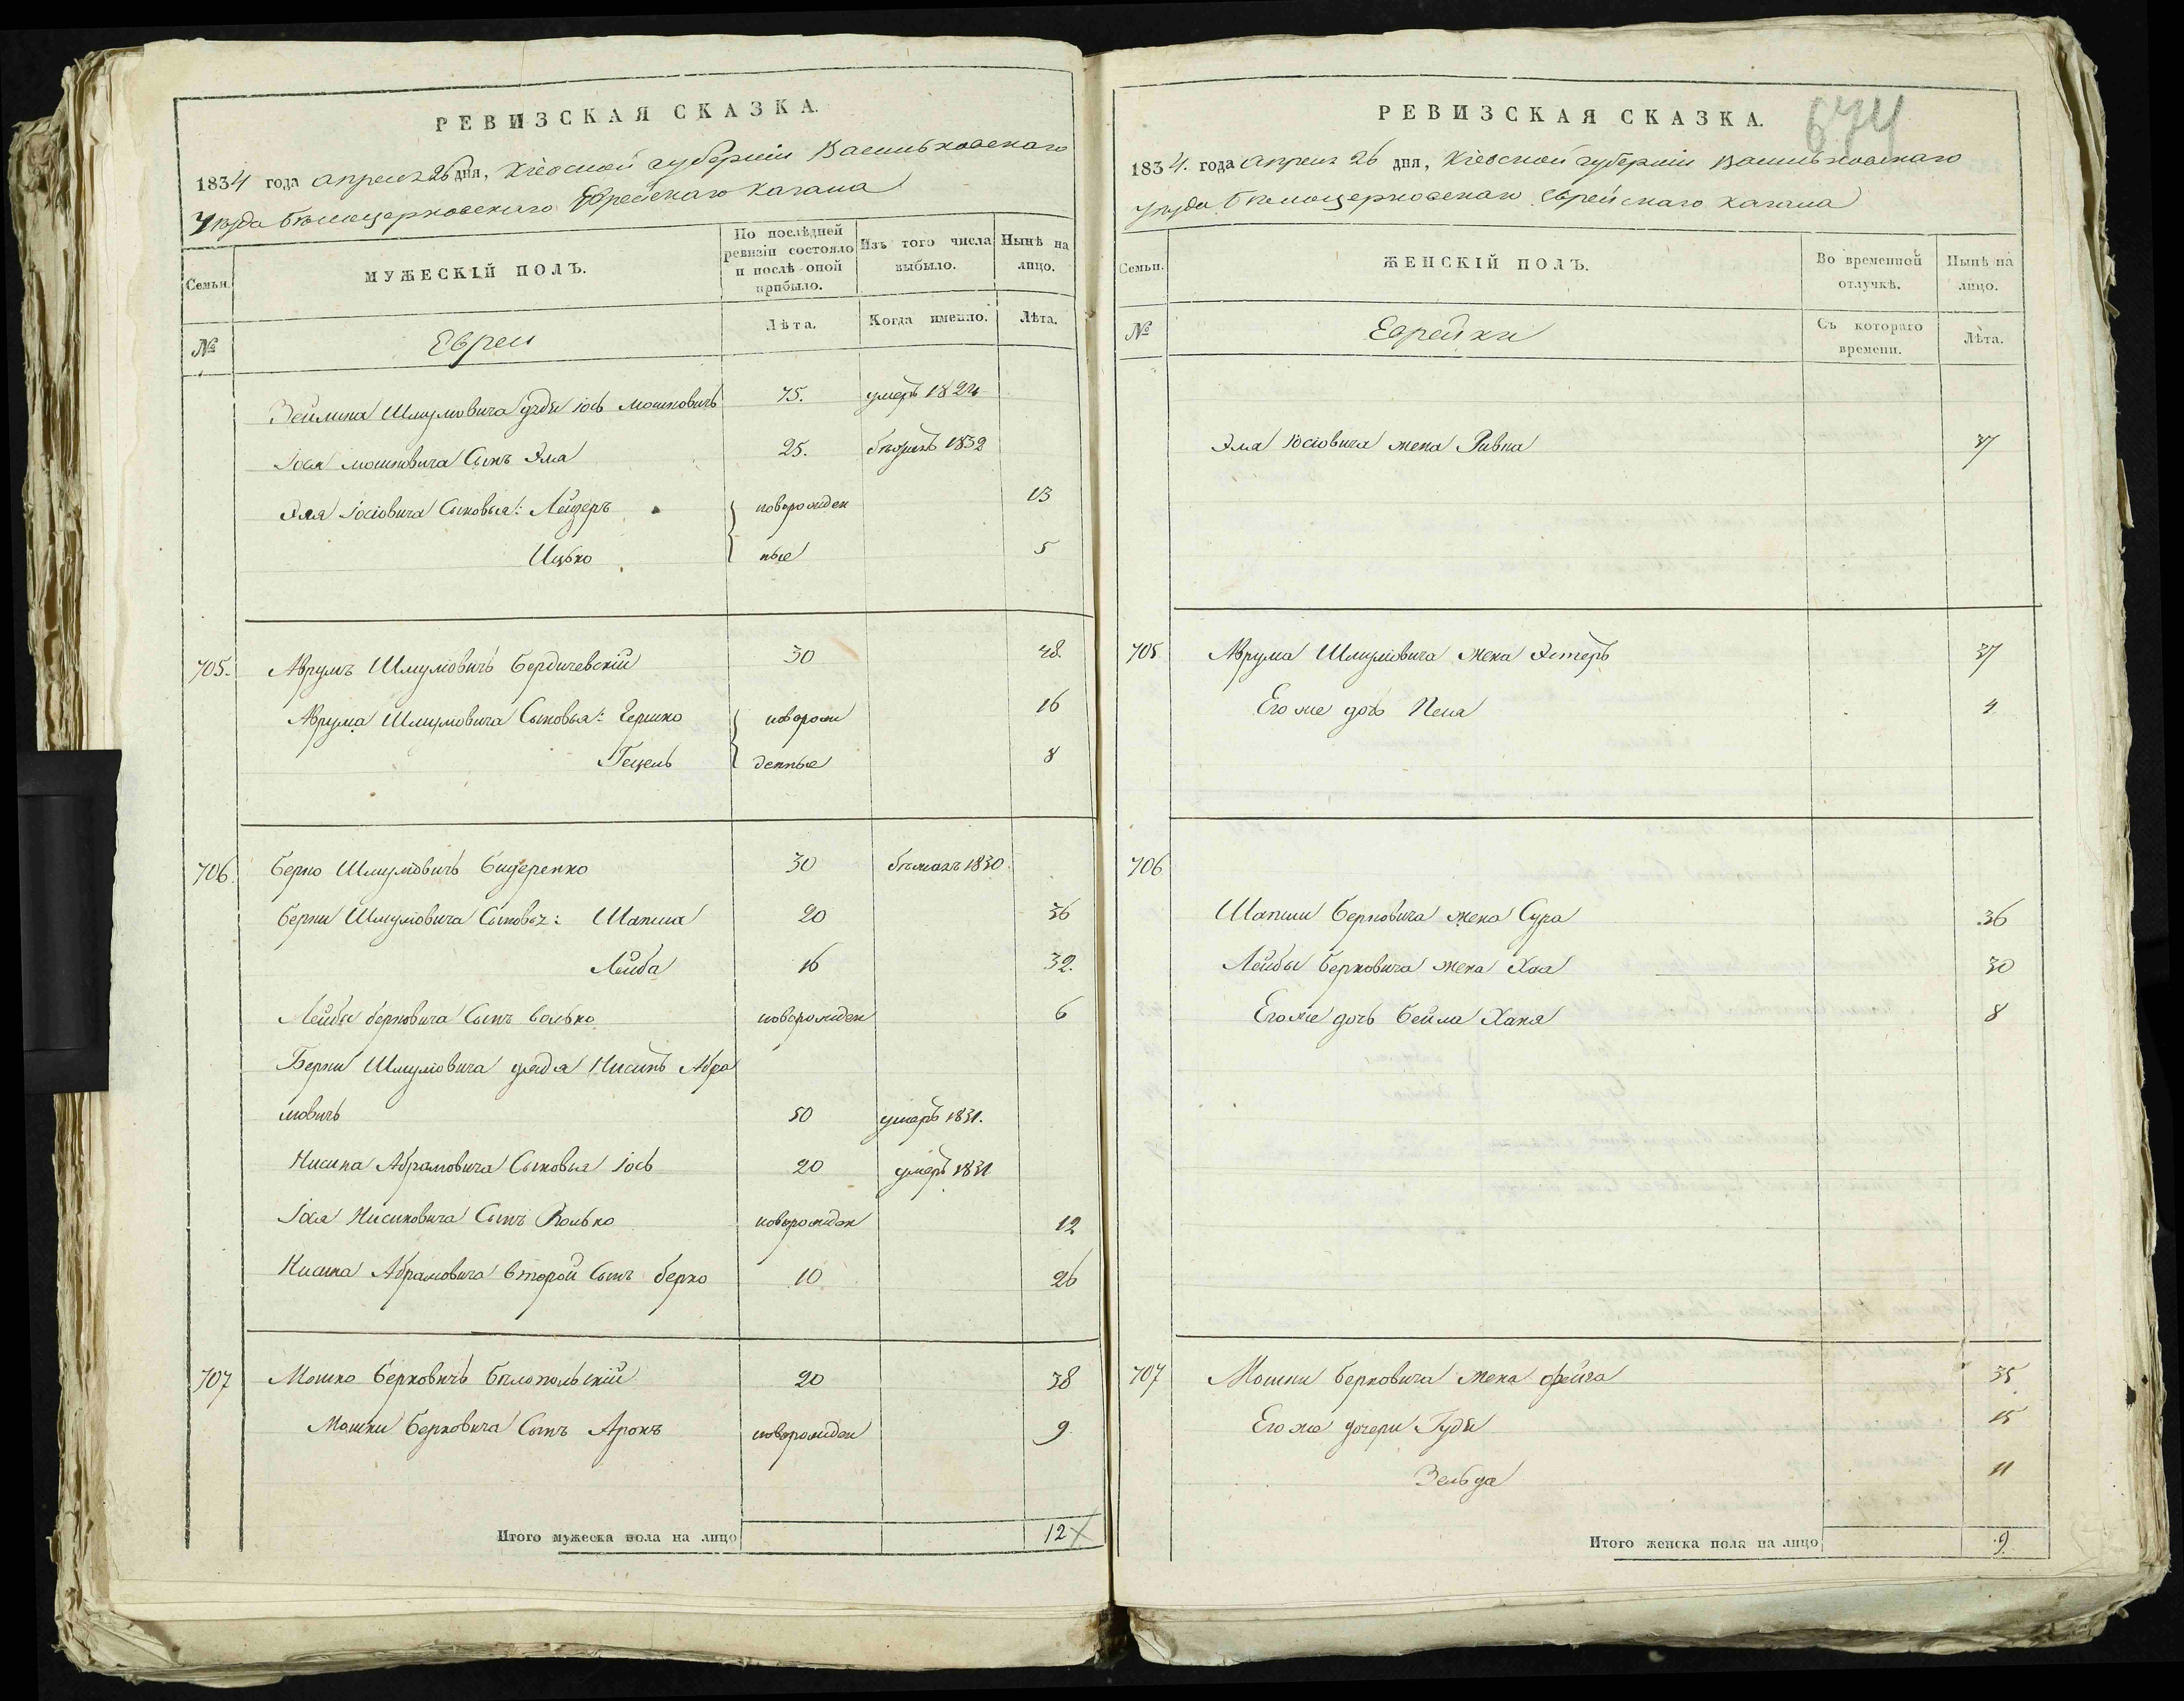 РЕВИЗСКАЯ СКАЗКА.
1834 года апреля 26 дня, Кіевской губерніи Васильковскаго
Уѣзда Бѣлоцерковскаго Еврейскаго Кагала
Семьи.
МУЖЕСКІЙ ПОЛЪ.
По послѣдней ревизіи состояло и послѣ оной прибыло.
Изъ того числа выбыло.
Нынѣ на лицо.
№
Евреи
Лѣта.
Когда именно.
Лѣта.
Зейлика Шмулиовича дядя Іось Мошковичъ 75. умеръ 1824
Іося Мошковича Сынъ Эла 25. 1832
Эля Іосіовича Сыновья: Лейзеръ новорожден 13
Ицко ные 5
705. Аврумъ Шмуліовичъ Бердичевскій 30 48.
Аврума Шмуліовича Сыновья: Гершко новорож 16
Гецель денные 8
706. Берко Шмуліовичъ 30 бѣжалъ 1830.
Берки Шмуліовича Сыновья: Шапша 20 36
Лейба 16 32.
Лейбы Берковича Сынъ Волько новорожден 6
Берки Шмуліовича дядя Нисинъ Абра
мовичъ 50 умеръ 1831.
Нисина Абрамовича Сыновья Іось 20 умеръ 1831
Іося Нисиновича Сынъ Волько новорожден 12
Нисина Абрамовича второй Сынъ Берко 10 26
707 Мошко Берковичъ Бѣлопольскій 20 38
Мошки Берковича Сынъ Аронъ новорожден 9
Итого мужеска пола на лицо 12
674
РЕВИЗСКАЯ СКАЗКА.
1834. года апреля 26 дня, Кіевской губерніи Васильковскаго
уѣзда Бѣлоцерковскаго Еврейскаго Кагала
Семьи.
ЖЕНСКІЙ ПОЛЪ.
Во временной отлучкѣ.
Нынѣ на лицо.
№
Еврейки
Съ котораго времени.
Лѣта.
Эля Іосіовича жена Ривка 37
705 Аврума Шмуліовича жена Эстеръ 37
Его же дочь 4
706
Шапши Берковича жена Сура 36
Лейбы Берковича жена Хая 30
Его же дочь Бейла Хана 8
707 Мошки Берковича жена Фейга 35
Его же дочери Гудя 15
Зельда 11
Итого женска пола на лицо 9.